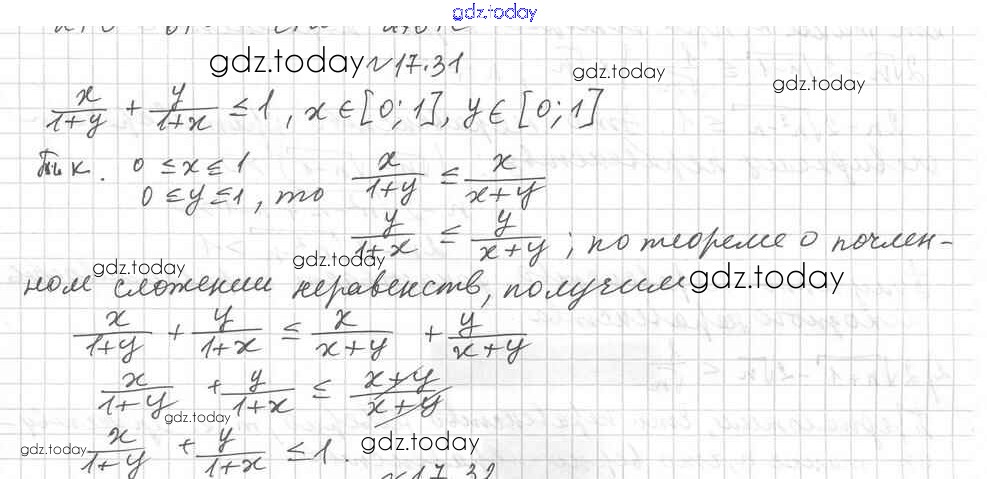 gdz.today
gdz.today №17.31
gdz.today
gdz.today
x/(1+y) + y/(1+x) ≤ 1, x ∈ [0; 1], y ∈ [0; 1]
Т.к. 0 ≤ x ≤ 1
0 ≤ y ≤ 1, то x/(1+y) ≤ x/(x+y)
y/(1+x) ≤ y/(x+y); по теореме о почлен-
gdz.today gdz.today
ном сложении неравенств, получим gdz.today
x/(1+y) + y/(1+x) ≤ x/(x+y) + y/(x+y)
x/(1+y) + y/(1+x) ≤ (x+y)/(x+y)
gdz.today
gdz.today x/(1+y) + y/(1+x) ≤ 1. gdz.today
№17.32